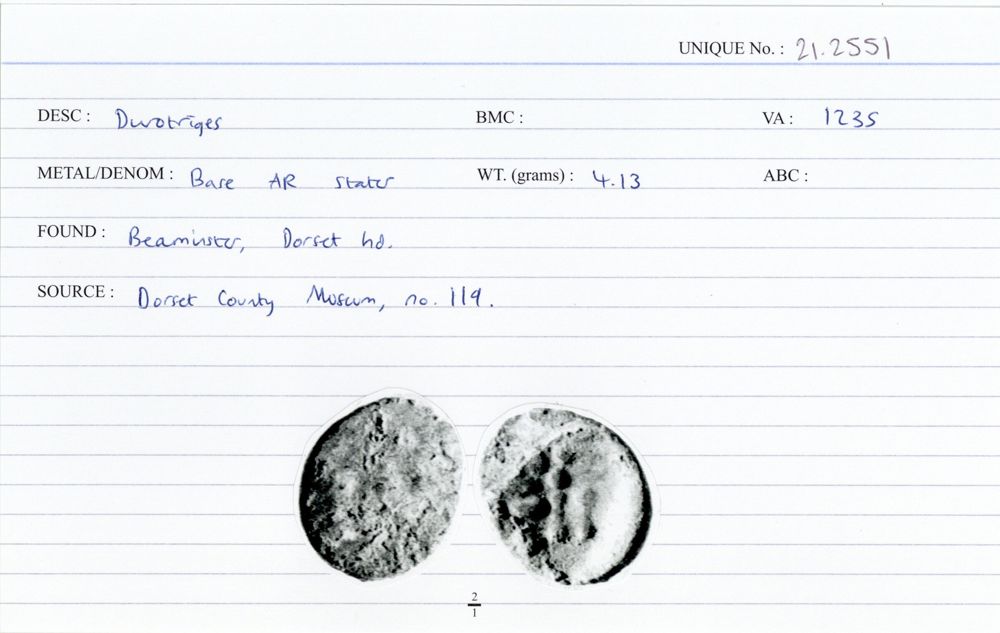 UNIQUE No. : 21.2551
DESC : Durotriges BMC : VA : 1235
METAL/DENOM : Base AR stater WT. (grams) : 4.13 ABC :
FOUND : Beaminster, Dorset hd.
SOURCE : Dorset County Museum, no. 119.
2
1